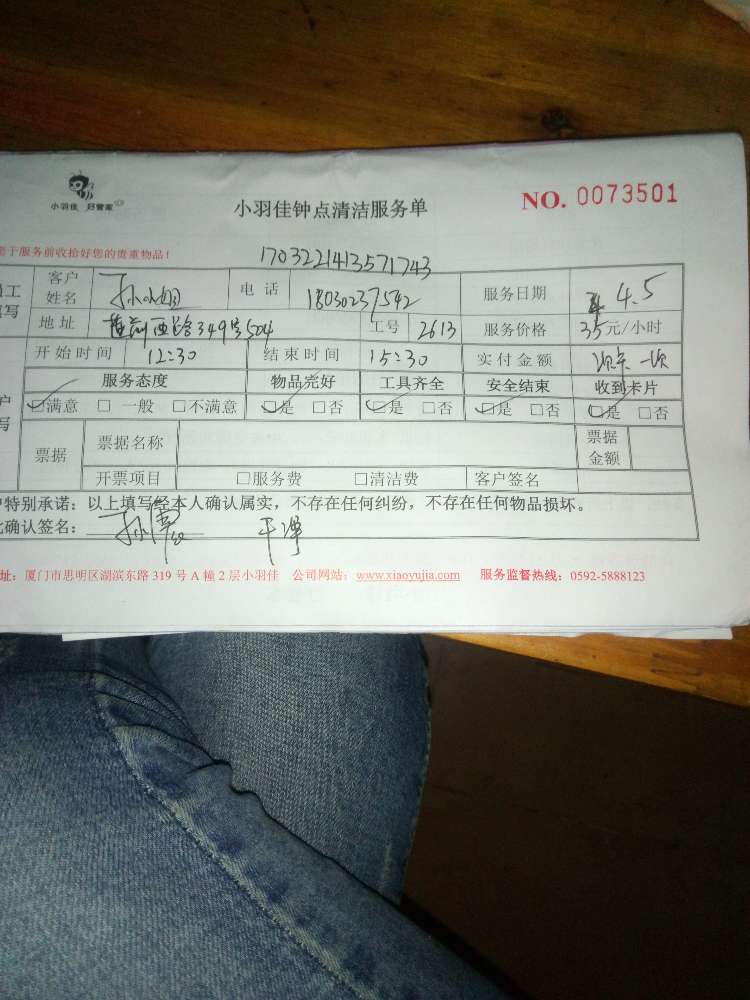 小羽佳 好管家
小羽佳钟点清洁服务单
NO. 0073501
于服务前收拾好您的贵重物品!
1703221413571743
工 客户姓名 孙小姐 电话 18030237542 服务日期 4.5
写 地址 349号504 工号 2613 服务价格 35元/小时
开始时间 12:30 结束时间 15:30 实付金额 次卡一次
服务态度 物品完好 工具齐全 安全结束 收到卡片
户 ☑满意 □一般 □不满意 ☑是 □否 ☑是 □否 ☑是 □否 ☑是 □否
写 票据 票据名称 票据金额
开票项目 □服务费 □清洁费 客户签名
特别承诺:以上填写经本人确认属实,不存在任何纠纷,不存在任何物品损坏。
此确认签名: 孙
址:厦门市思明区湖滨东路 319 号 A 幢 2 层小羽佳 公司网站:www.xiaoyujia.com 服务监督热线:0592-5888123